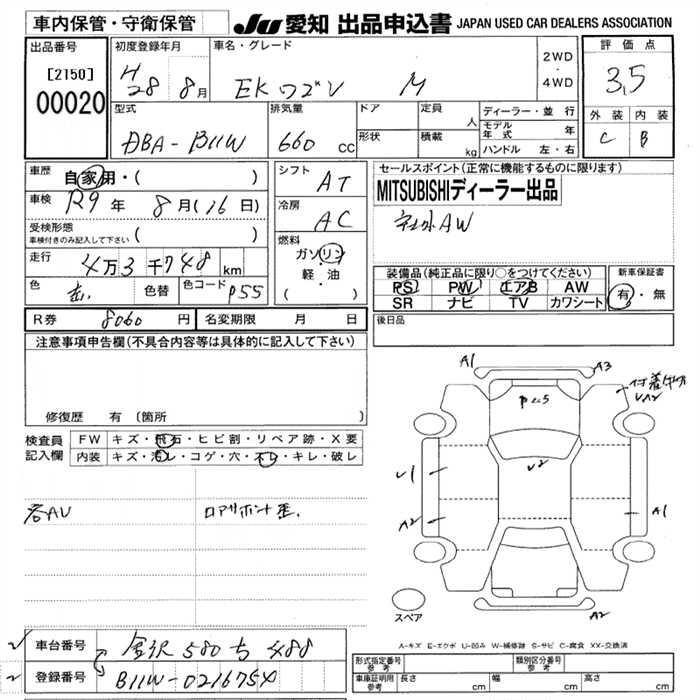 車内保管・守衛保管
JU 愛知 出品申込書 JAPAN USED CAR DEALERS ASSOCIATION
出品番号
[2150]
00020
初度登録年月
H28 8月
車名・グレード
EKワゴン M
2WD・4WD
評価点
3.5
外装 内装
C B
型式
DBA-B11W
排気量
660 CC
ドア
形状
定員 人
積載 kg
ディーラー・並行
モデル年式 年
ハンドル 左・右
車歴
自家用・( )
車検
R9年 8月(16日)
受検形態
車検付きのみ記入して下さい ( )
走行
4万3千748km
色 色替 色コード P55
シフト AT
冷房 AC
燃料
ガソリン
軽・油
( )
セールスポイント(正常に機能するものに限ります)
MITSUBISHIディーラー出品
社外AW
装備品(純正品に限り○をつけてください)
PS PW エアB AW
SR ナビ TV カワシート
新車保証書
有・無
R券 8060円
名変期限 月 日
後日品
注意事項申告欄(不具合内容等は具体的に記入して下さい)
修復歴 有 〔箇所 〕
検査員記入欄
FW キズ・飛石・ヒビ割・リペア跡・X要
内装 キズ・汚レ・コゲ・穴・スレ・キレ・破レ
各AU
ロアサポート
A1
A3
付着
UA2
P
U2
U1
A2
A1
A2
スペア
A-キズ E-エクボ U-凹み W-補修跡 S-サビ C-腐食 XX-交換済
車台番号 金沢 580 ち 488
登録番号 B11W-0216754
形式指定番号 参考
類別区分番号 参考
車庫証明用 参考 長さ cm 幅 cm 高さ cm